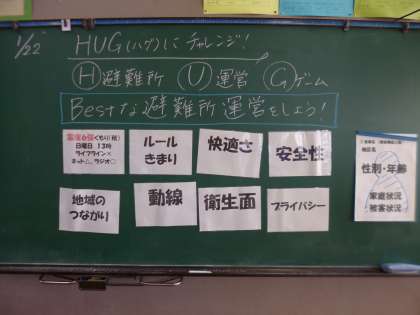 1/22
HUG(ハグ)にチャレンジ!
Ⓗ避難所 Ⓤ運営 Ⓖゲーム
Bestな避難所運営をしよう!
震度6強
日曜日 13時
ライフライン×
ネット△、ラジオ○
ルール
きまり
快適さ
安全性
地域の
つながり
動線
衛生面
プライバシー
性別・年齢
家庭状況
被害状況